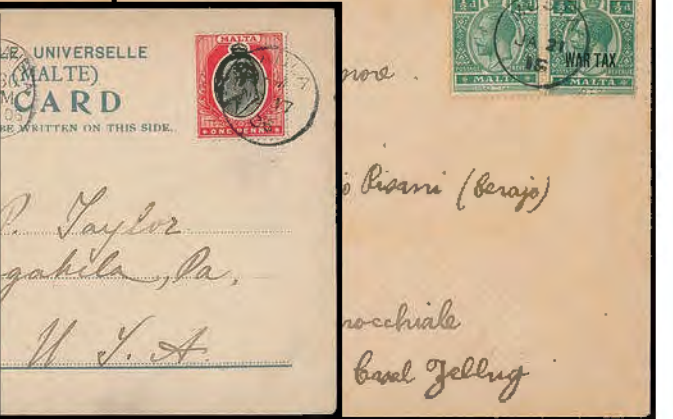 UNIVERSELLE
(MALTE)
CARD
BE WRITTEN ON THIS SIDE.
MALTA
ONE PENNY
P. Taylor
gahila, Pa,
U. S. A.
½d
½d
JA 21
WAR TAX
MALTA
MALTA
more.
Pisani (Berajo)
rocchiale
Casal Zebbug